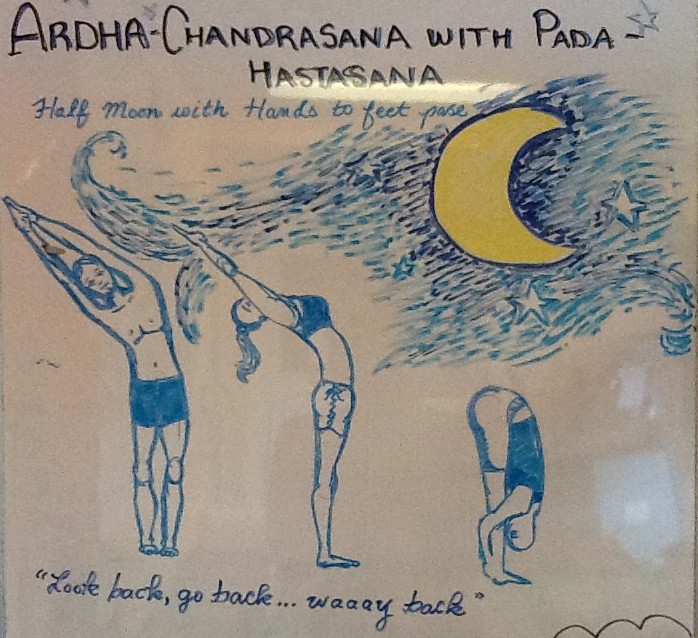 ARDHA-CHANDRASANA WITH PADA-
HASTASANA
Half Moon with Hands to feet pose
"Look back, go back... waaay back"